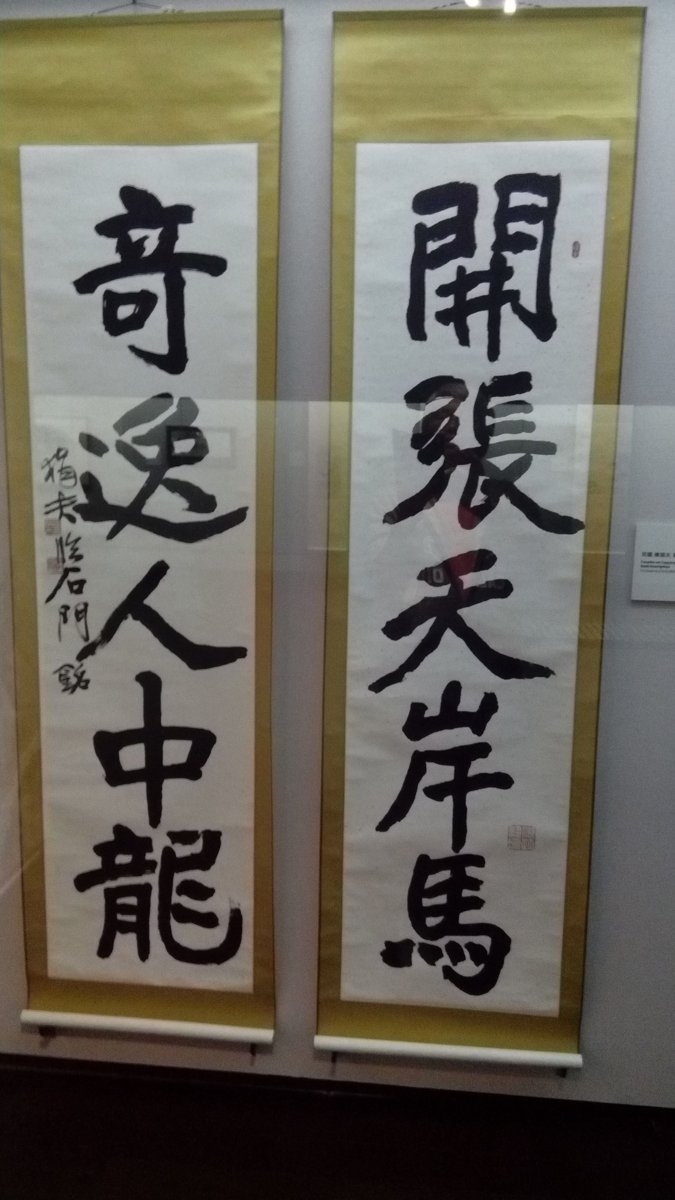 開張天岸馬
奇逸人中龍
猾夫臨石門銘